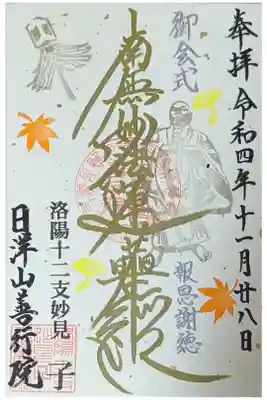 奉拝 令和四年十一月廿八日
御会式
報恩謝徳
南無妙法蓮華経
洛陽十二支妙見
子
日洋山善行院